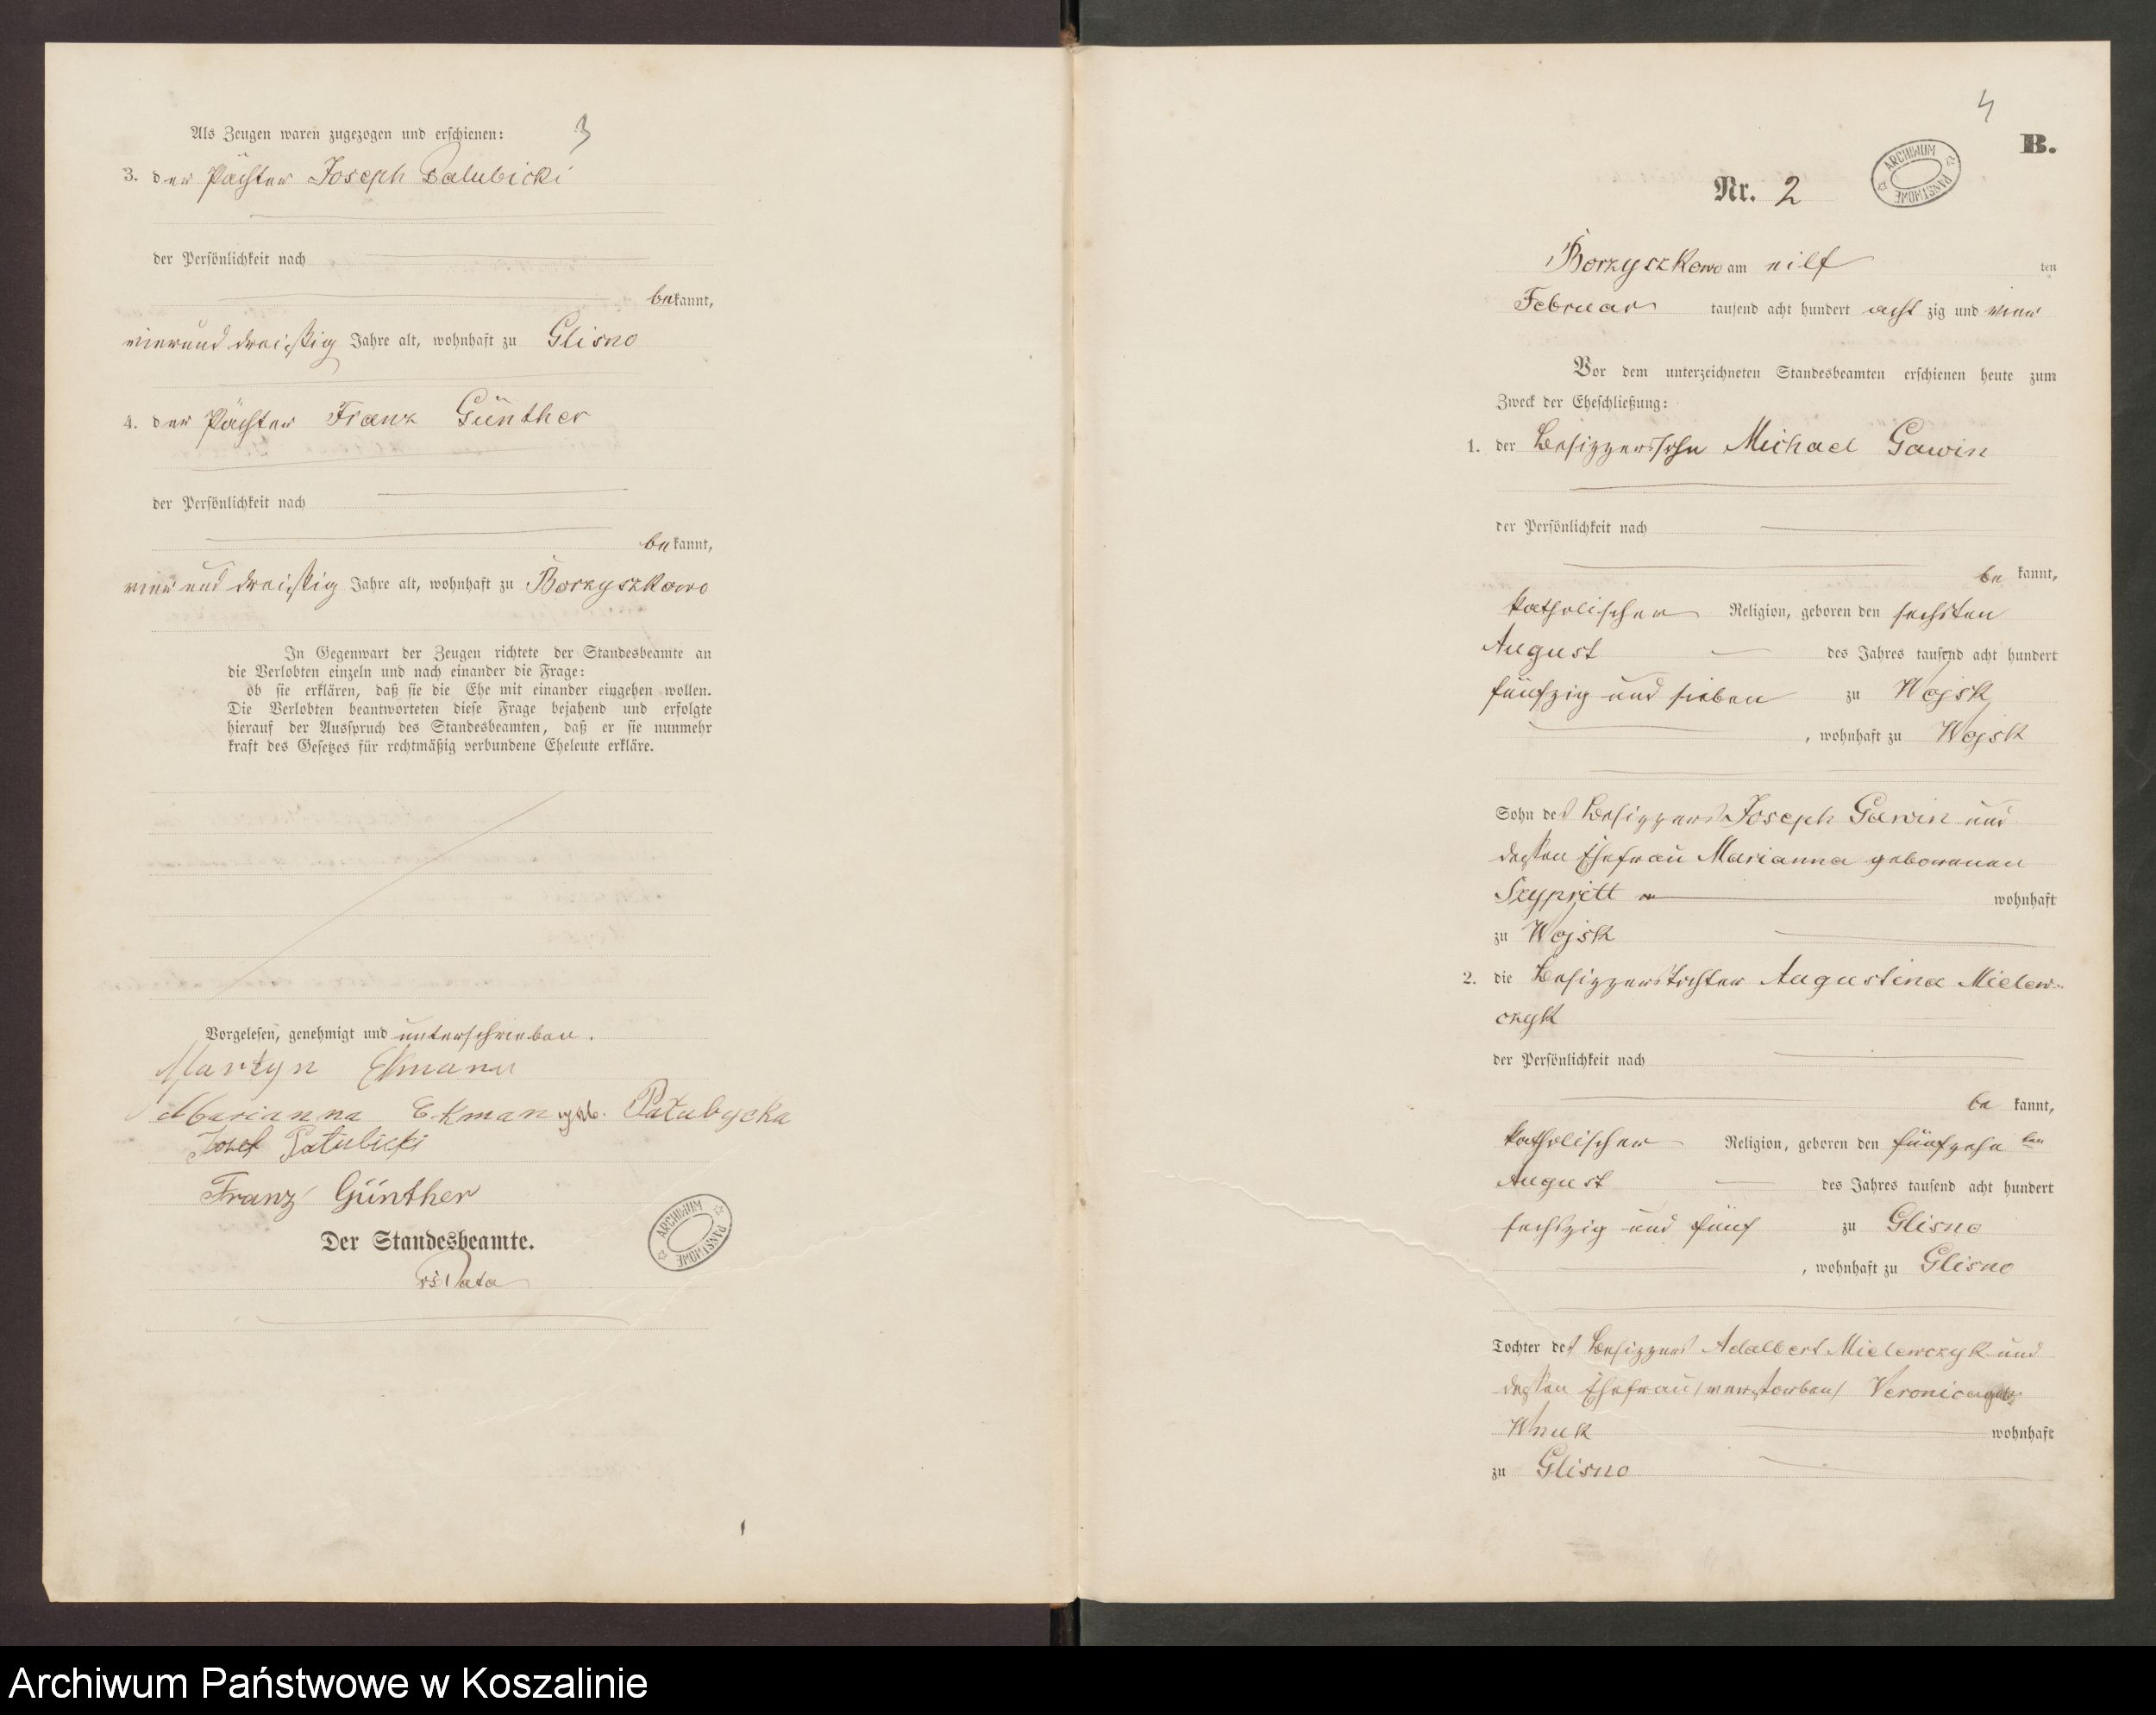 3
Als Zeugen waren zugezogen und erschienen:
3. der Pächter Joseph Palubicki
der Persönlichkeit nach
bekannt,
vierund dreißig Jahre alt, wohnhaft zu Glisno
4. der Pächter Franz Günther
der Persönlichkeit nach
bekannt,
vier und dreißig Jahre alt, wohnhaft zu Borzyszkowo
In Gegenwart der Zeugen richtete der Standesbeamte an
die Verlobten einzeln und nach einander die Frage:
ob sie erklären, daß sie die Ehe mit einander eingehen wollen.
Die Verlobten beantworteten diese Frage bejahend und erfolgte
hierauf der Ausspruch des Standesbeamten, daß er sie nunmehr
kraft des Gesetzes für rechtmäßig verbundene Eheleute erkläre.
Vorgelesen, genehmigt und unterschrieben.
Martyn Ekmann
Marianna Ekman geb. Pałubycka
Josef Pałubicki
Franz Günther
Der Standesbeamte.
ARCHIWUM PAŃSTWOWE
4
B.
Nr. 2
ARCHIWUM PAŃSTWOWE
Borzyszkowo am eilf ten
Februar tausend acht hundert acht zig und vier
Vor dem unterzeichneten Standesbeamten erschienen heute zum
Zweck der Eheschließung:
1. der Besitzerssohn Michael Gawin
der Persönlichkeit nach
be kannt,
katholischer Religion, geboren den sechsten
August des Jahres tausend acht hundert
fünfzig und sieben zu Wojsk
, wohnhaft zu Wojsk
Sohn des Besitzers Joseph Gawin und
dessen Ehefrau Marianna geborenen
Szypritt wohnhaft
zu Wojsk
2. die Besitzerstochter Augustina Mielew-
czyk
der Persönlichkeit nach
be kannt,
katholischer Religion, geboren den fünfzehn ten
August des Jahres tausend acht hundert
sechszig und fünf zu Glisno
, wohnhaft zu Glisno
Tochter des Besitzers Adalbert Mielewczyk und
dessen Ehefrau /verstorben/ Veronica geb.
Wnuk wohnhaft
zu Glisno
Archiwum Państwowe w Koszalinie